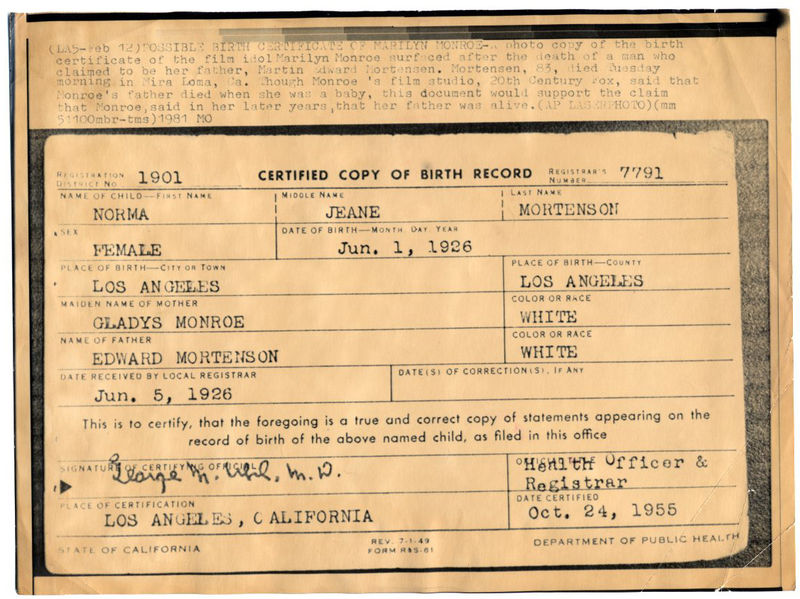 (LA5-Feb 12)POSSIBLE BIRTH CERTIFICATE OF MARILYN MONROE-A photo copy of the birth
certificate of the film idol Marilyn Monroe surfaced after the death of a man who
claimed to be her father, Martin Edward Mortensen. Mortensen, 83, died Tuesday
morning in Mira Loma, Ca. Though Monroe's film studio, 20th Century Fox, said that
Monroe's father died when she was a baby, this document would support the claim
that Monroe, said in her later years, that her father was alive.(AP LASERPHOTO)(mm
51100mbr-tms)1981 MO
REGISTRATION DISTRICT NO. 1901 CERTIFIED COPY OF BIRTH RECORD REGISTRAR'S NUMBER 7791
NAME OF CHILD—FIRST NAME MIDDLE NAME LAST NAME
NORMA JEANE MORTENSON
SEX DATE OF BIRTH—MONTH DAY YEAR
FEMALE Jun. 1, 1926
PLACE OF BIRTH—CITY OR TOWN PLACE OF BIRTH—COUNTY
LOS ANGELES LOS ANGELES
MAIDEN NAME OF MOTHER COLOR OR RACE
GLADYS MONROE WHITE
NAME OF FATHER COLOR OR RACE
EDWARD MORTENSON WHITE
DATE RECEIVED BY LOCAL REGISTRAR DATE(S) OF CORRECTION(S), IF ANY
Jun. 5, 1926
This is to certify, that the foregoing is a true and correct copy of statements appearing on the
record of birth of the above named child, as filed in this office
SIGNATURE OF CERTIFYING OFFICIAL
George M. Uhl, M.D. Health Officer &
Registrar
PLACE OF CERTIFICATION DATE CERTIFIED
LOS ANGELES, CALIFORNIA Oct. 24, 1955
STATE OF CALIFORNIA REV. 7-1-49 DEPARTMENT OF PUBLIC HEALTH
FORM R&S-61